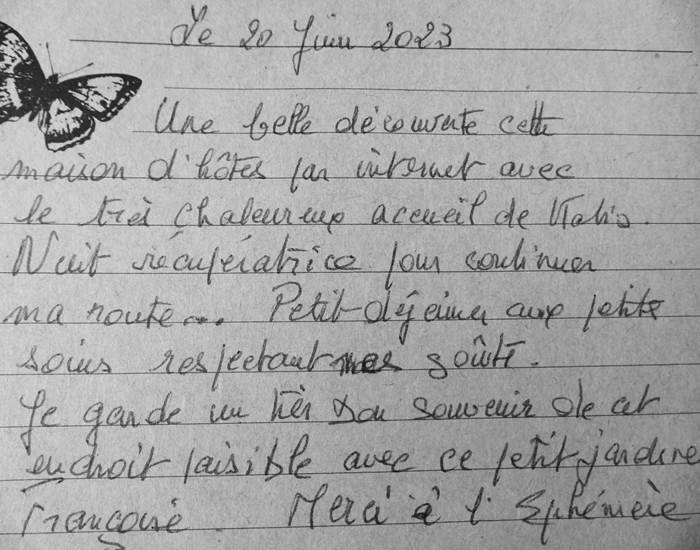 Le 20 Juin 2023
Une belle découverte cette
maison d'hôtes par internet avec
le très chaleureux accueil de
Nuit récupératrice pour continuer
ma route... Petit-déjeuner aux petits
soins respectant mes goûts.
Je garde un très bon souvenir de cet
endroit paisible avec ce petit jardin
Françoise Merci à l'Ephémère